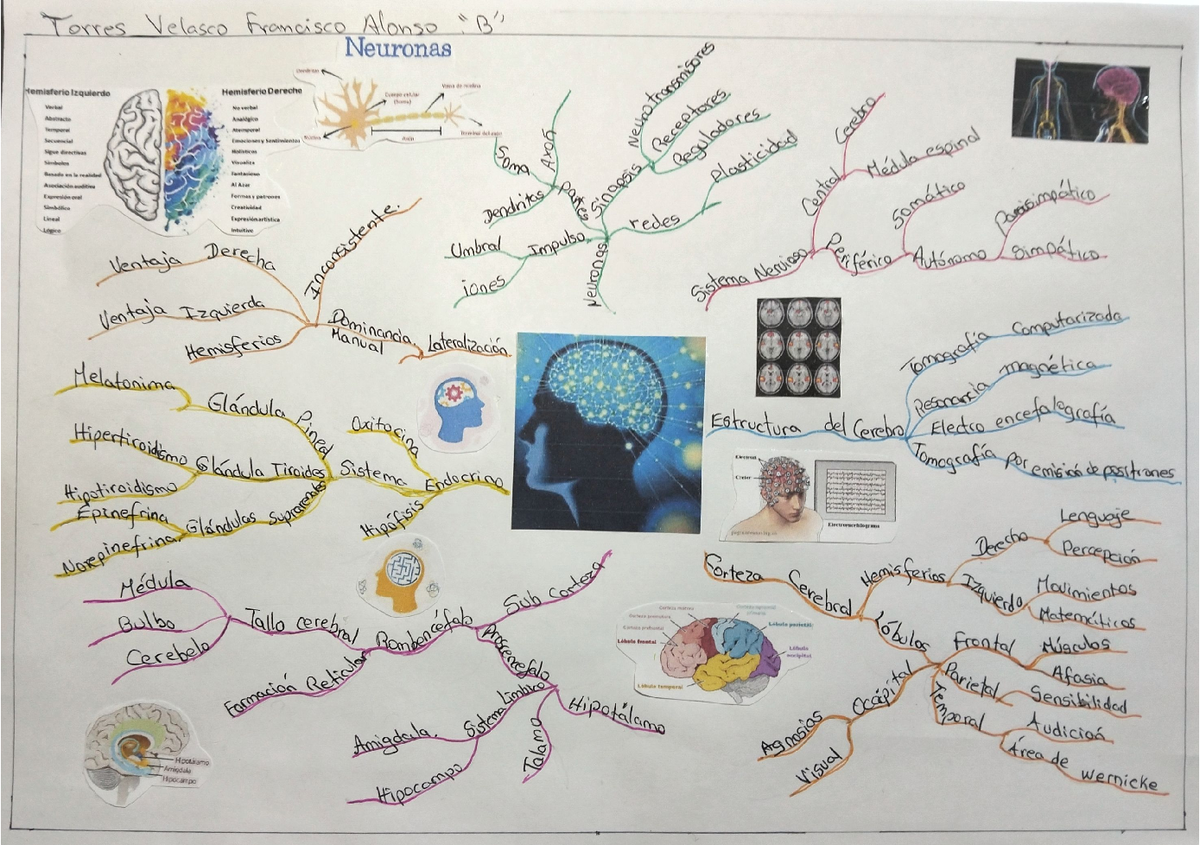 Torres Velasco Francisco Alonso "B"
Neuronas
Hemisferio Izquierdo
Verbal
Abstracto
Temporal
Secuencial
Sigue directivas
Símbolos
Basado en la realidad
Asociación auditiva
Expresión oral
Simbólico
Lineal
Lógico
Hemisferio Derecho
No verbal
Analógico
Atemporal
Emociones y sentimientos
Holísticos
Visualiza
Fantasioso
Al Azar
Formas y patrones
Creatividad
Expresión artística
Intuitivo
Dendritas
Cuerpo celular
(Soma)
Vaina de mielina
Núcleo
Axón
Terminal del axón
Neuronas
Partes
Soma
Axón
Dendritas
Impulso
Umbral
iones
Sinapsis
Neurotransmisores
Receptores
Reguladores
redes
Plasticidad
Sistema Nervioso
Central
Cerebro
Médula espinal
Periférico
Somático
Autónomo
Parasimpático
Simpático
Lateralización
Dominancia
Manual
Inconsistente.
Ventaja Derecha
Ventaja Izquierda
Hemisferios
Estructura del Cerebro
Tomografía Computarizada
Resonancia magnética
Electro encefalografía
Tomografía por emisión de positrones
Electroencefalograma
Sistema Endocrino
Oxitocina
Hipófisis
Glándula Pineal
Melatonima
Glándula Tiroides
Hipertiroidismo
Hipotiroidismo
Glándulas Suprarenales
Epinefrina
Norepinefrina
Sub Corteza
Rombencéfalo
Tallo cerebral
Médula
Bulbo
Cerebelo
Formación Reticular
Prosencefalo
Sistema Limbico
Amigdala.
Hipocampo
Talamo
Hipotálamo
Hipotálamo
Amígdala
Hipocampo
Corteza Cerebral
Hemisferios
Derecho
Lenguaje
Percepción
Izquierdo
Movimientos
Matemáticas
Lóbulos
Frontal
Músculos
Afasia
Parietal
Sensibilidad
Temporal
Audición
Área de Wernicke
Occipital
Agnosias
Visual
Lóbulo frontal
Lóbulo parietal
Lóbulo occipital
Lóbulo temporal